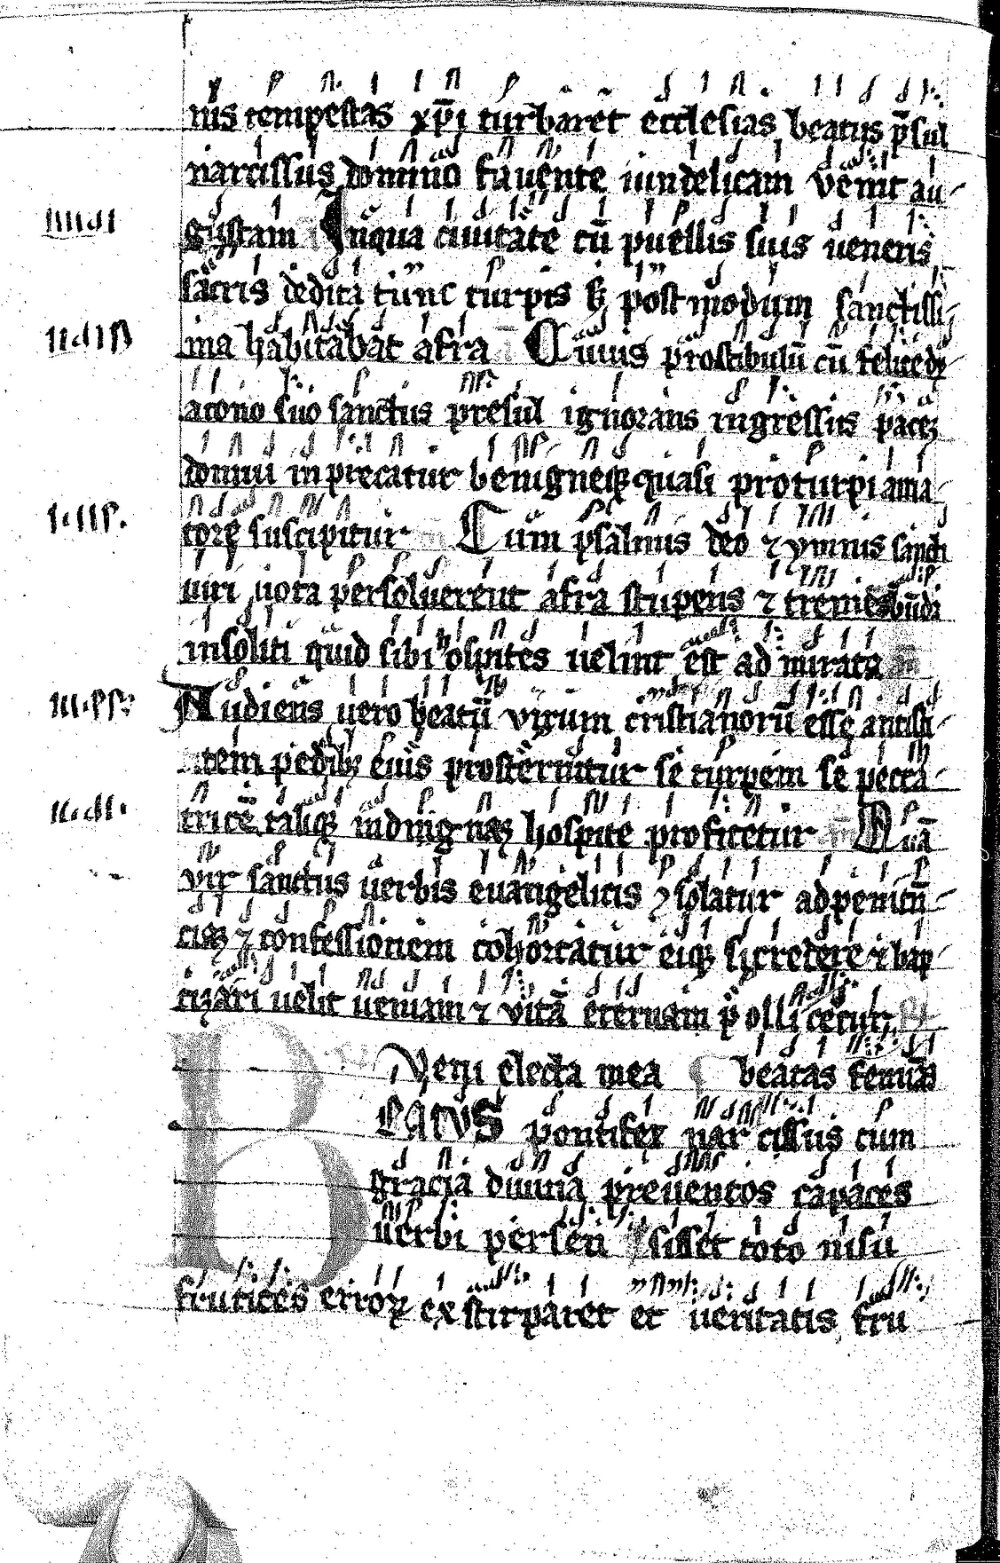 nis tempestas xp̄i turbaret ecclesias beatus p̄sul
narcissus domino fauente iundelicam venit au
gustam Inqua ciuitate cū puellis suis ueneris
sacris dedita tunc turpis sꝫ post modum sanctissi
ma habitabat afra Cuius prostibulū cū felice dẏ
acono suo sanctus presul ignorans ingressus paceꝫ
domui inprecatur benigneqꝫ quasi proturpi ama
tore suscipitur Cum psalmis deo ⁊ ymnis sancti
uiri uota persoluerent afra stupens ⁊ tremebūda
insoliti quid sibi hospites uelint est ad mirata
Audiens uero beatū virum cristianorū esse antisti
tem pedibꝫ eius prosternitur se turpem se pecca
tricē taliqꝫ indignaꝫ hospite profitetur Quā
vir sanctus uerbis euangelicis ꝯsolatur adpenitēn
ciaꝫ ⁊ confessionem cohortatur eiqꝫ si credere ⁊ bap
tizari uelit ueniam ⁊ vitā eternam pollicetur
Veni electa mea beatas feminas
BEATVS pontifex narcissus cum
gracia diuina preuentos capaces
uerbi persen sisset toto nisu
frutices erroꝝ exstirparet et ueritatis fru